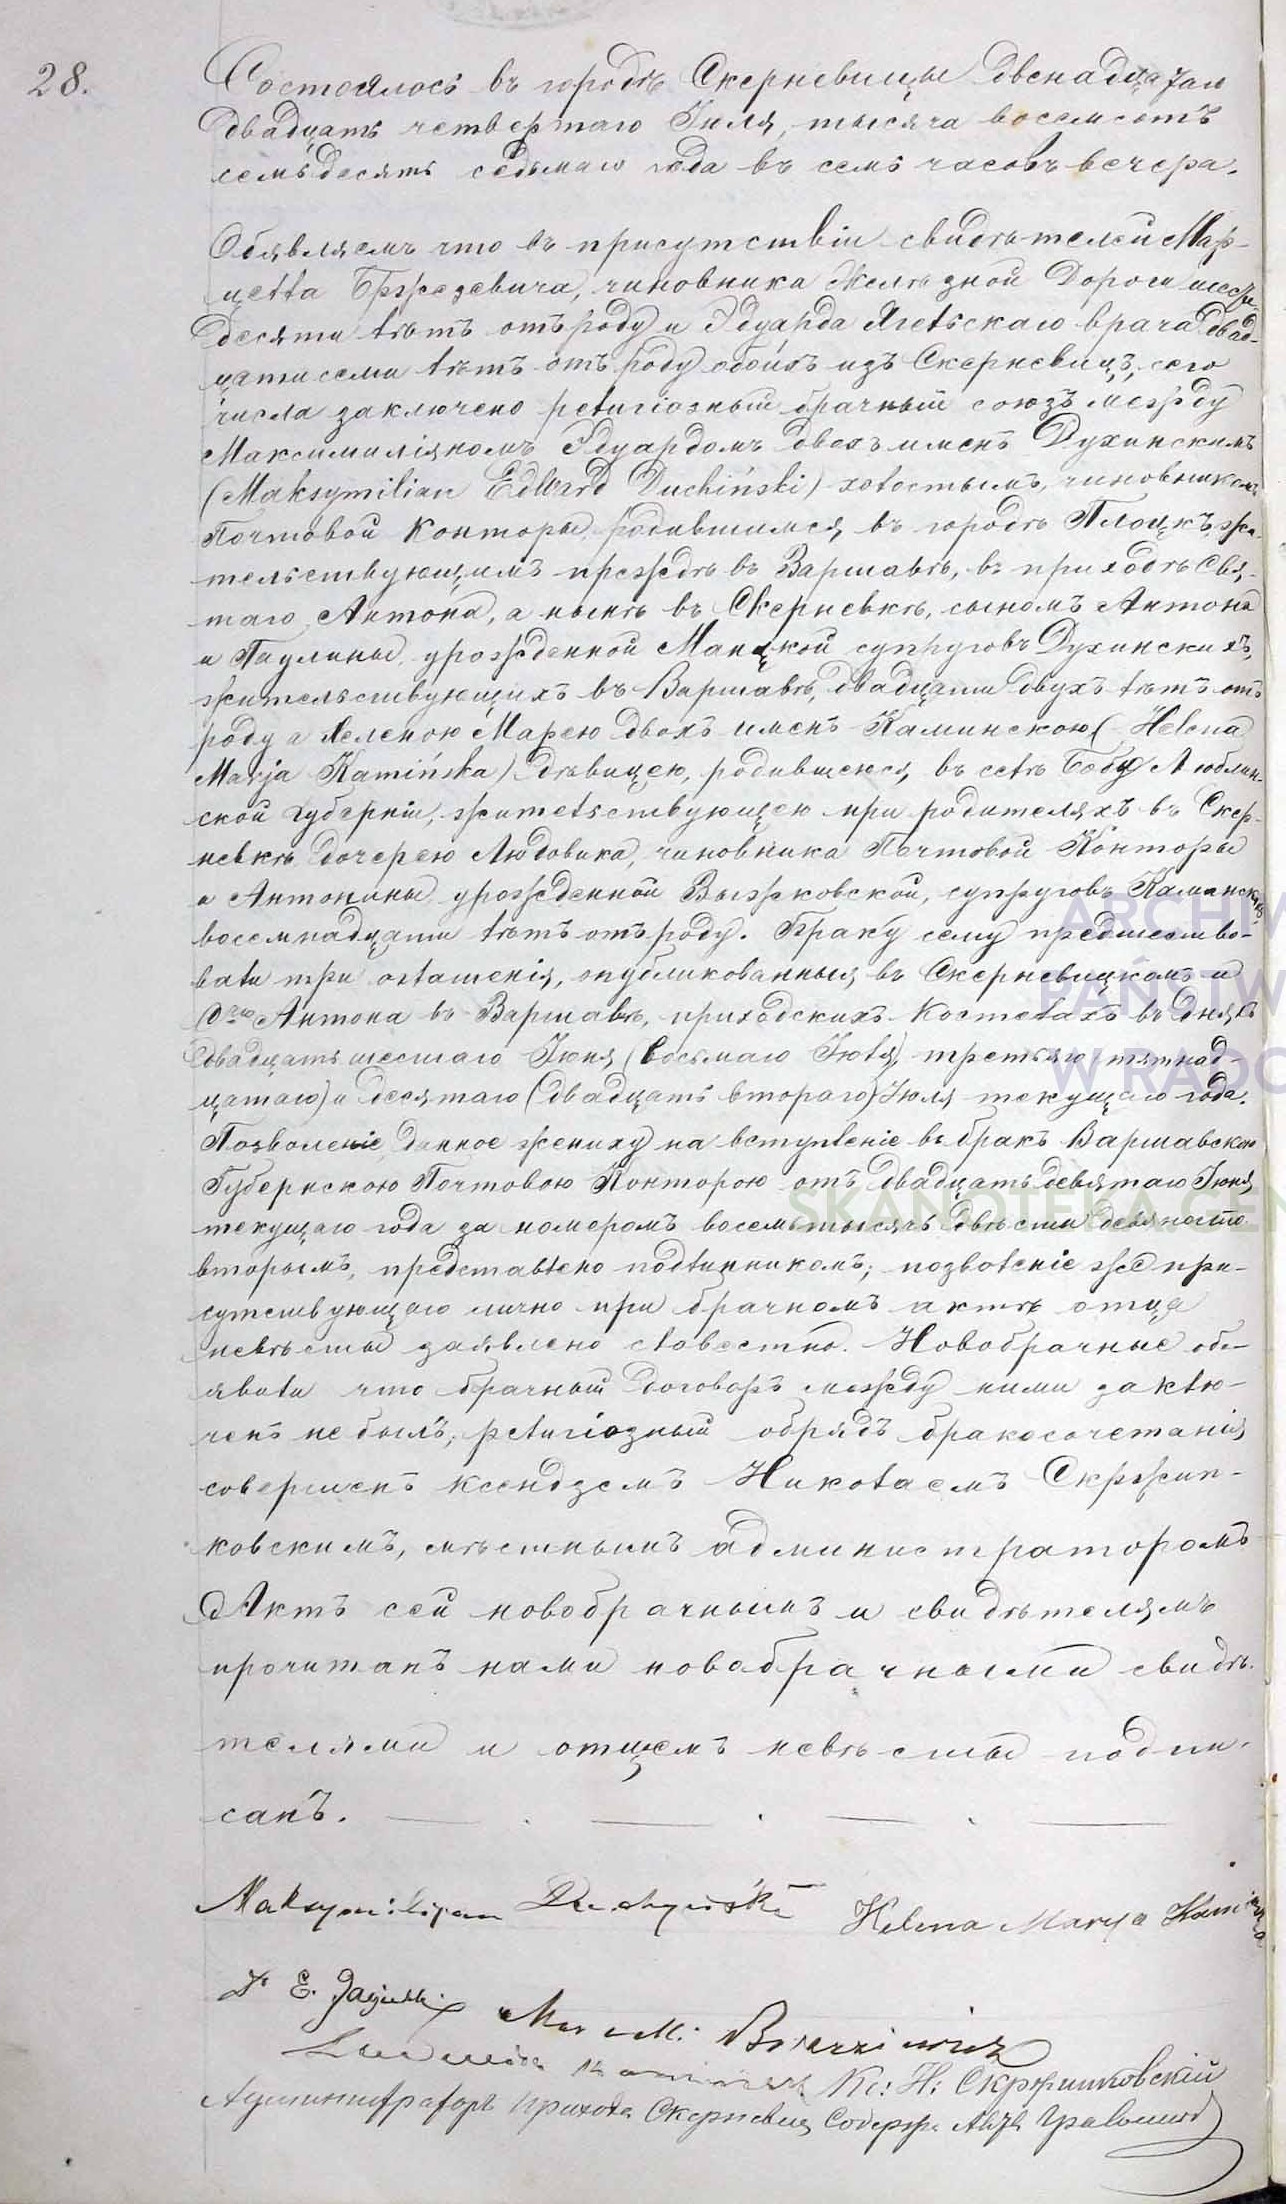 28.
Состоялось въ городѣ Скерневицы двенадцатаго
двадцать четвертаго Іюля, тысяча восемсотъ
семьдесятъ седьмаго года въ семь часовъ вечера.
Объявляемъ что въ присутствіи свидѣтелей Мар-
целла Бржезевича, чиновника Желѣзной Дороги шести-
десяти лѣтъ отъ роду и Эдуарда Ягельскаго врача двад-
цати семи лѣтъ отъ роду обоихъ изъ Скерневицъ, сего
числа заключено религіозный брачный союзъ между
Максимиліяномъ Эдуардомъ двохъ именъ Духинскимъ
(Maksymilian Edward Duchiński) холостымъ, чиновникомъ
Почтовой Конторы, родившимся, въ городѣ Плоцкъ, жи-
тельствующимъ прежде въ Варшавѣ, въ приходѣ Свя-
таго Антона, а нынѣ въ Скерневкѣ, сыномъ Антона
и Паулины, урожденной Манцкой супруговъ Духинскихъ,
жительствующихъ въ Варшавѣ, двадцати двухъ лѣтъ отъ
роду а Еленою Марею двохъ именъ Каминскою (Helena
Marja Kamińska) дѣвицею, родившеюся, въ селѣ Бобы Люблин-
ской Губерніи, жительствующею при родителяхъ въ Скер-
невкѣ дочерею Людовика, чиновника Почтовой Конторы
и Антонины урожденной Выржковской, супруговъ Каминскихъ
восемнадцати лѣтъ отъ роду. Браку сему предшество-
вали три оглашенія, опубликованныя, въ Скерневицкомъ и
Сго Антона въ Варшавѣ, приходскихъ Костелахъ въ дняхъ
двадцать шестаго Іюня (восьмаго Іюля) третьяго (пятнад-
цатаго) и десятаго (двадцать втораго) Іюля текущаго года.
Позволеніе данное жениху на вступленіе въ бракъ Варшавскою
Губернскою Почтовою Конторою отъ двадцать девятаго Іюня
текущаго года за номеромъ восемь тысячъ двѣсти девяносто
вторымъ, представлено подлинникомъ; позволеніе же при-
сутствующаго лично при брачномъ актѣ отца
невѣсты заявлено словестно. Новобрачные объ-
явили что брачный договоръ между ними заклю-
ченъ не былъ; религіозный обрядъ бракосочетанія
совершенъ ксендземъ Николаемъ Скржип-
ковскимъ, мѣстнымъ администраторомъ
Актъ сей новобрачнымъ и свидѣтелямъ
прочитанъ нами новобрачными свидѣ-
телями и отцемъ невѣсты подпи-
санъ.
Maksymilijan Duchyński Helena Marya Kamińska
Dr E. Jagielski Marcelli Brzeziewicz
Ludwik Kamiński Кс: Н: Скржипковскій
Администраторъ Прихода Скерневиц Содерж. Акты Гражданск
ARCHIW
PAŃSTW
W RADO
SKANOTEKA.GEN